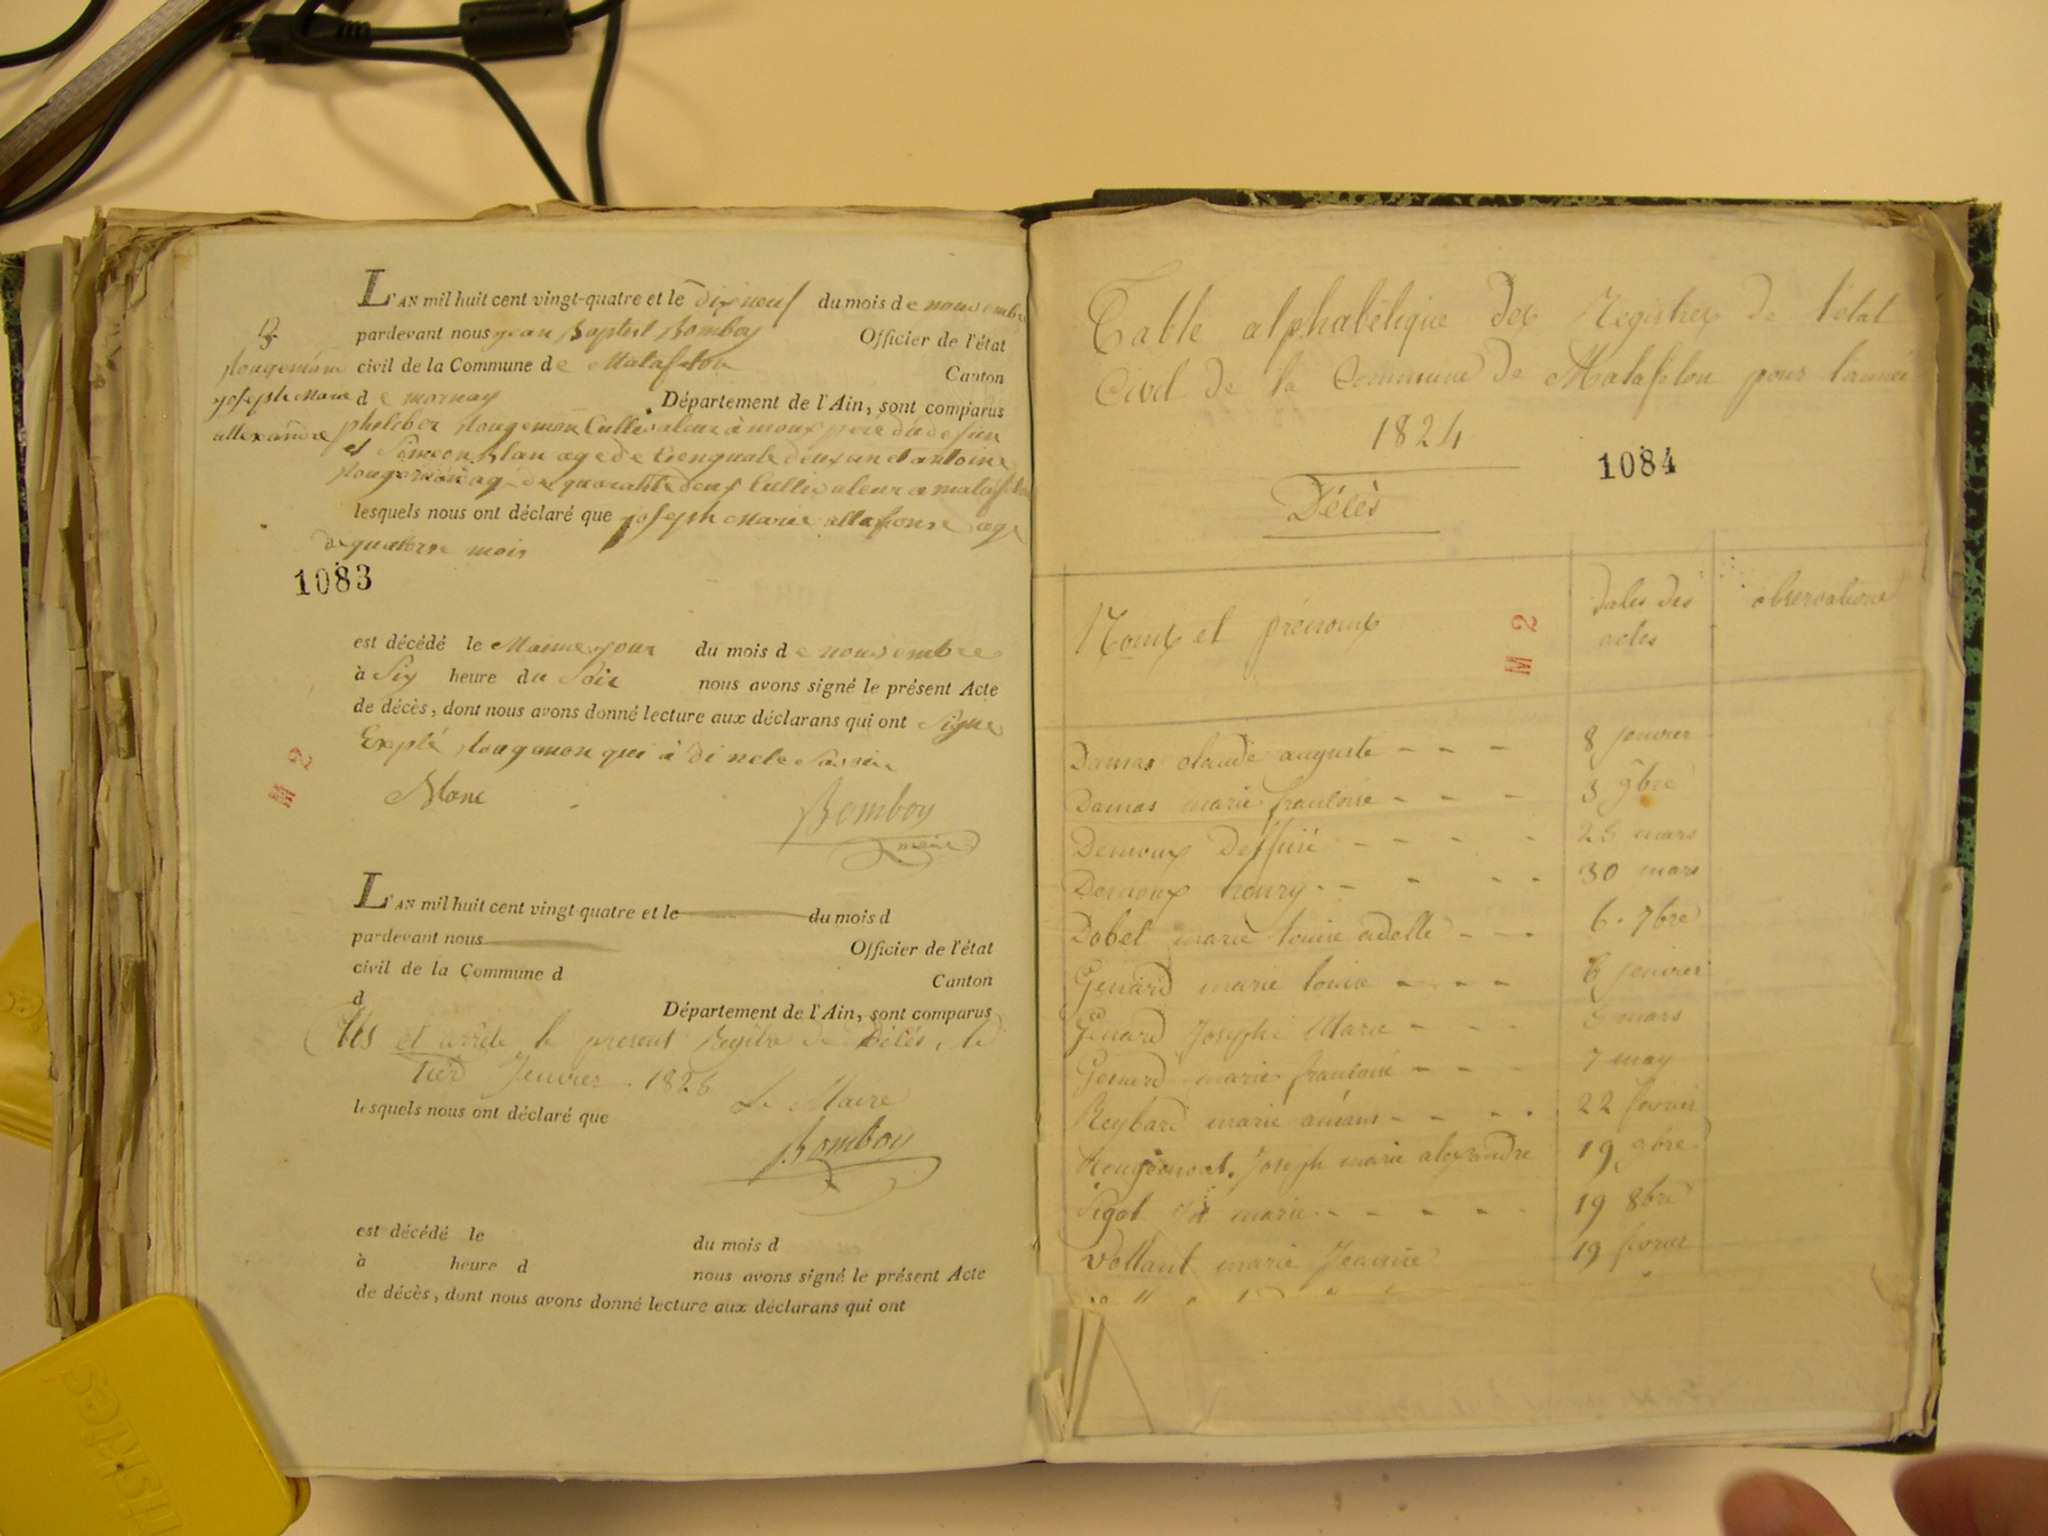 L'AN mil huit cent vingt-quatre et le dix neuf du mois de nouvembre
pardevant nous jean Baptist Bomboy Officier de l'état
civil de la Commune de Matafelon Canton
de mornay Département de l'Ain, sont comparus
philiber Rougemon Cultivateur à
et Simeon Blan age de deux an et antoine
Rougemon age de quarante deux Cultivateur a matafelon
lesquels nous ont déclaré que joseph Marie age
de quatorse mois
Rougemon
joseph Marie
allexandre
1083
est décédé le Maime jour du mois de nouvembre
à Six heure du Soir nous avons signé le présent Acte
de décès, dont nous avons donné lecture aux déclarans qui ont Signe
Exepté Rougemon qui à di
Blanc
Bomboy
maire
M 2
L'AN mil huit cent vingt-quatre et le du mois d
pardevant nous Officier de l'état
civil de la Commune d Canton
d Département de l'Ain, sont comparus
Clos et arrêté le present Registre de Décès, le
1er Jenvier 1825
Le Maire
lesquels nous ont déclaré que
Bomboy
est décédé le du mois d
à heure d nous avons signé le présent Acte
de décès, dont nous avons donné lecture aux déclarans qui ont
Table alphabétique des Registres de l'état
Civil de la Commune de Matafelon pour l'année
1824
1084
Décès
Noms et prénoms
M 2
Dates des actes
observations
Damas claude auguste - - - 8 jenvier
Damas marie francoise - - - 3 9bre
Demoux - - - - 25 mars
Demoux henry - - - - 30 mars
Dobel marie louise adelle - - - 6 7bre
Genard marie louise - - - - 6 jenvier
Genard Joseph Marie - - - 5 mars
Genard marie francoise - - - - 7 may
Reybard marie - - - - 22 fevrier
Rougemont Joseph marie alexandre 19 9bre
Pigot marie - - - - - 19 8bre
Vollant marie Jeanne 19 fevrier